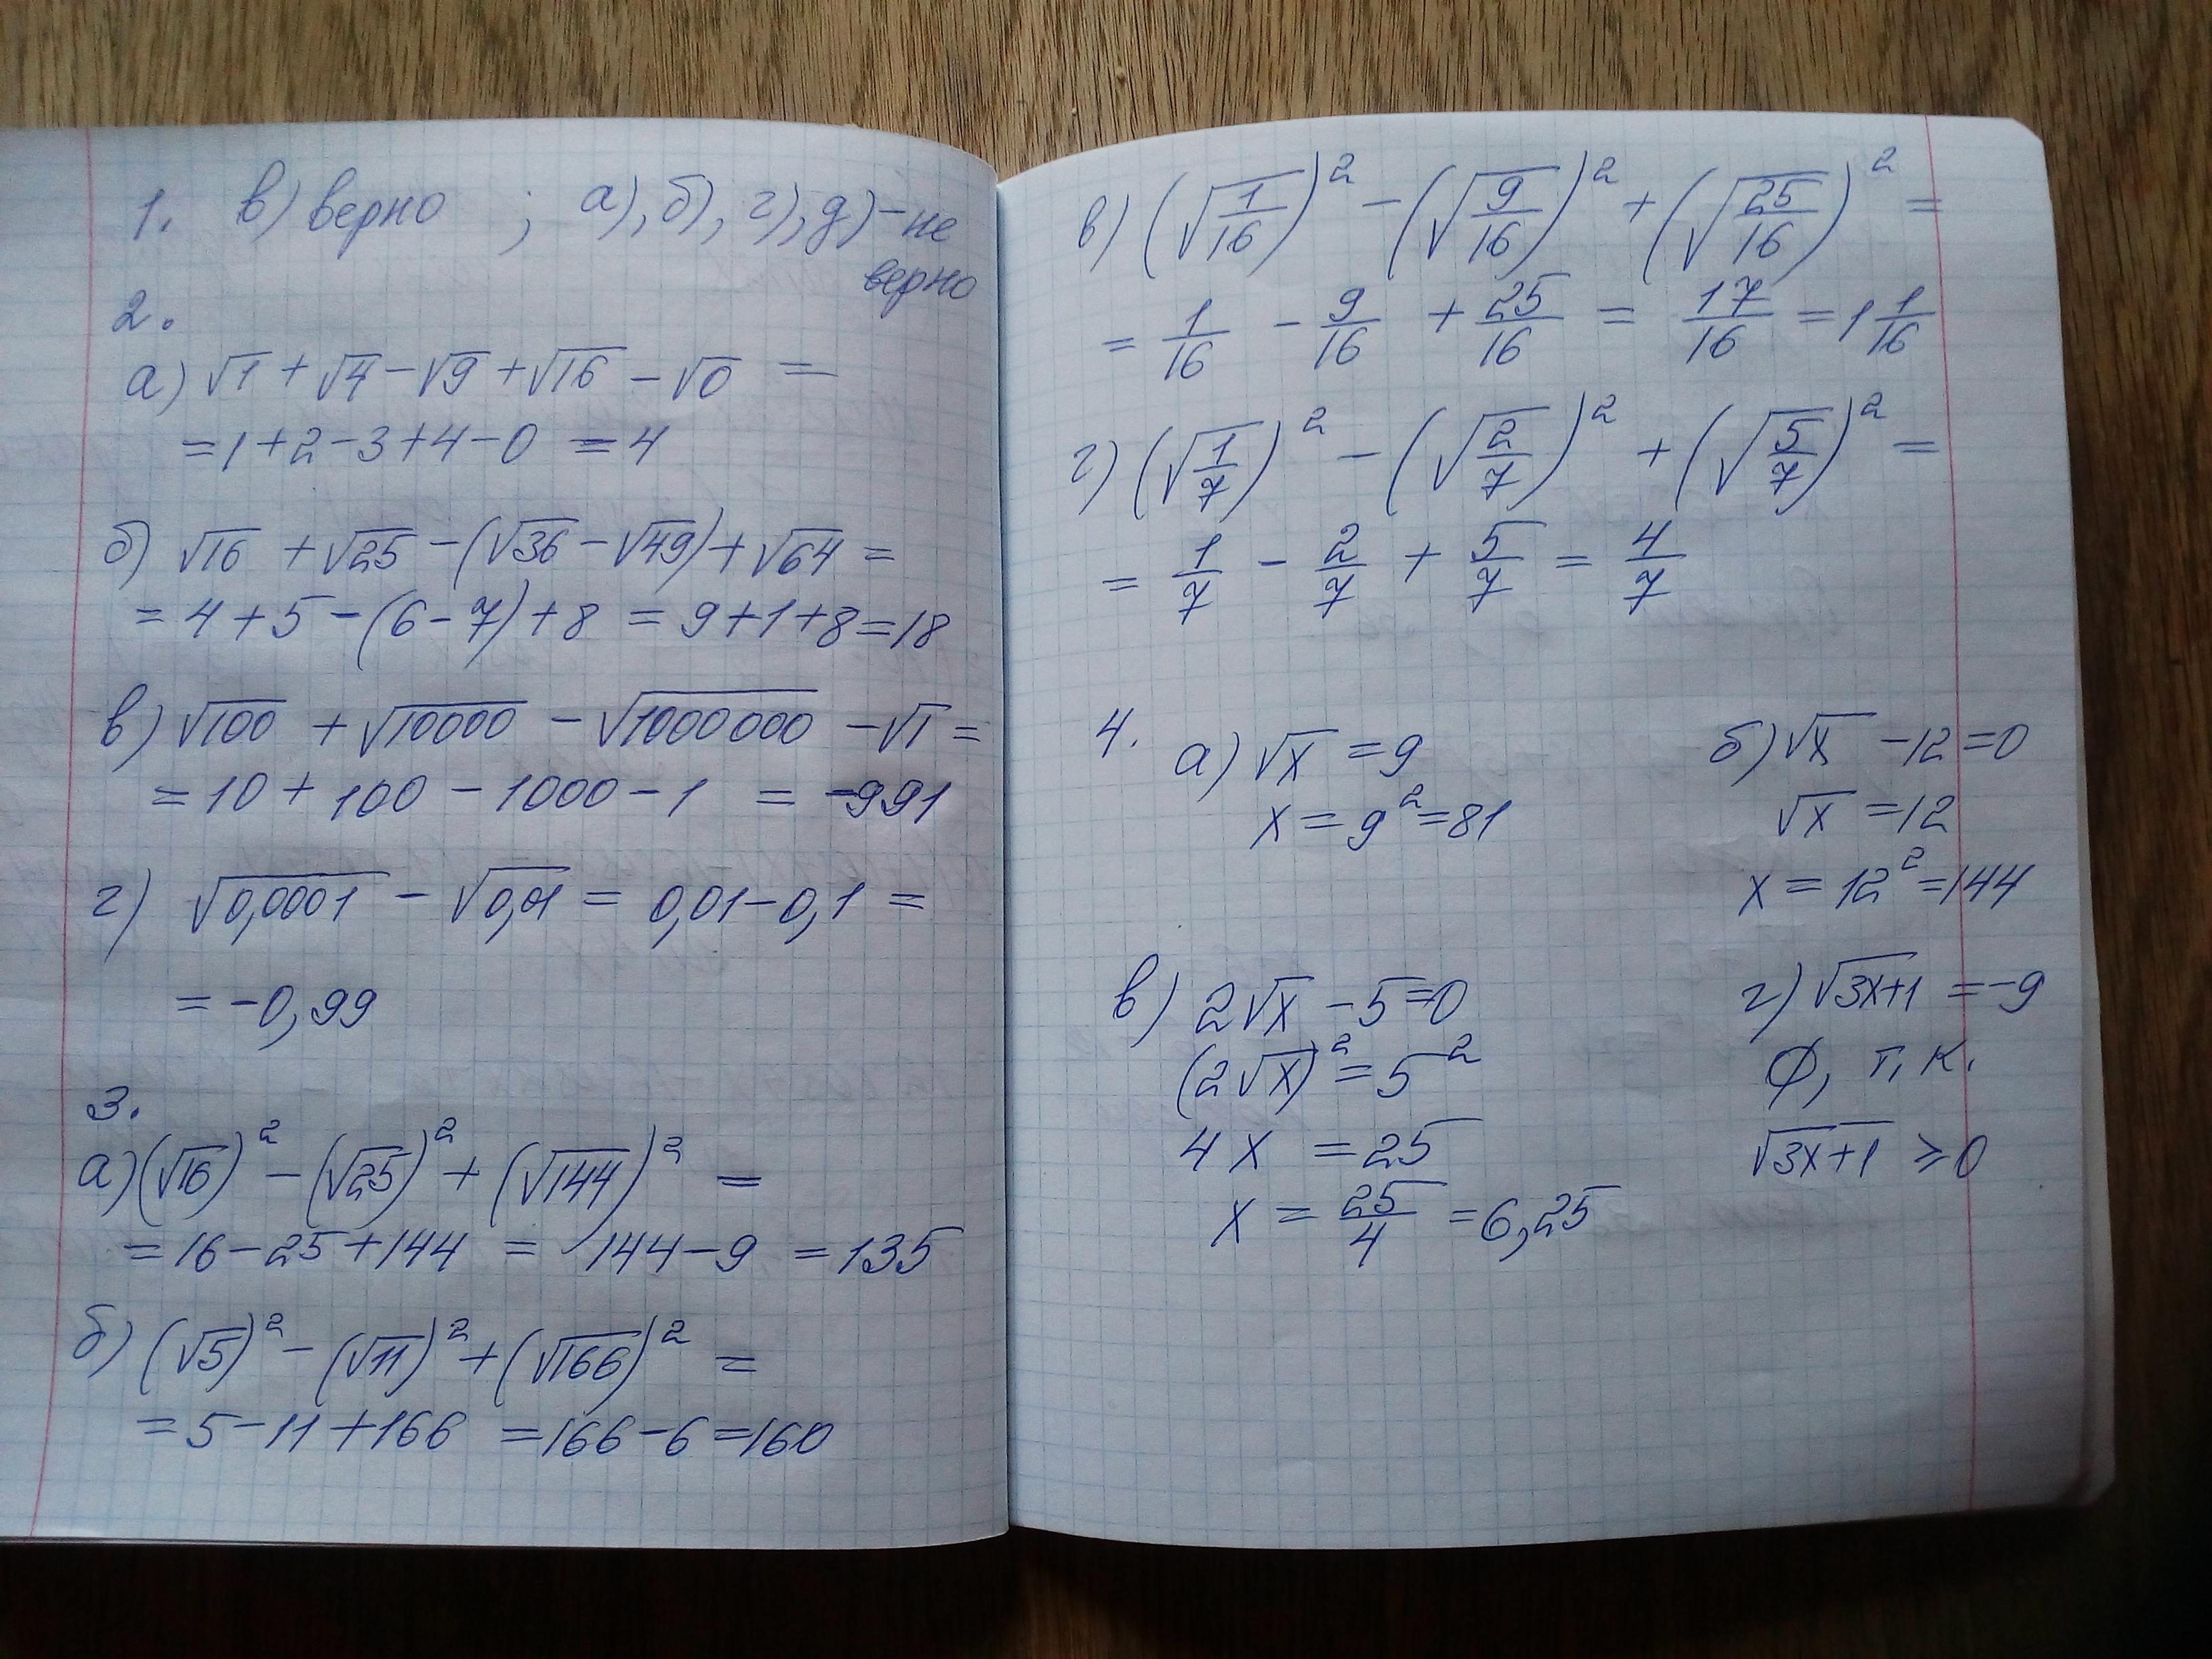 1. в) верно ; а), б), г), д) – не
верно
2.
а) √1 + √4 − √9 + √16 − √0 =
= 1 + 2 − 3 + 4 − 0 = 4
б) √16 + √25 − (√36 − √49) + √64 =
= 4 + 5 − (6 − 7) + 8 = 9 + 1 + 8 = 18
в) √100 + √10000 − √1000000 − √1 =
= 10 + 100 − 1000 − 1 = −991
г) √0,0001 − √0,01 = 0,01 − 0,1 =
= −0,99
3.
а) (√16)² − (√25)² + (√144)² =
= 16 − 25 + 144 = 144 − 9 = 135
б) (√5)² − (√11)² + (√166)² =
= 5 − 11 + 166 = 166 − 6 = 160
в) (√1/16)² − (√9/16)² + (√25/16)² =
= 1/16 − 9/16 + 25/16 = 17/16 = 1 1/16
г) (√1/7)² − (√2/7)² + (√5/7)² =
= 1/7 − 2/7 + 5/7 = 4/7
4. а) √x = 9
x = 9² = 81
б) √x − 12 = 0
√x = 12
x = 12² = 144
в) 2√x − 5 = 0
(2√x)² = 5²
4x = 25
x = 25/4 = 6,25
г) √3x+1 = −9
∅, т, к.
√3x+1 ⩾ 0